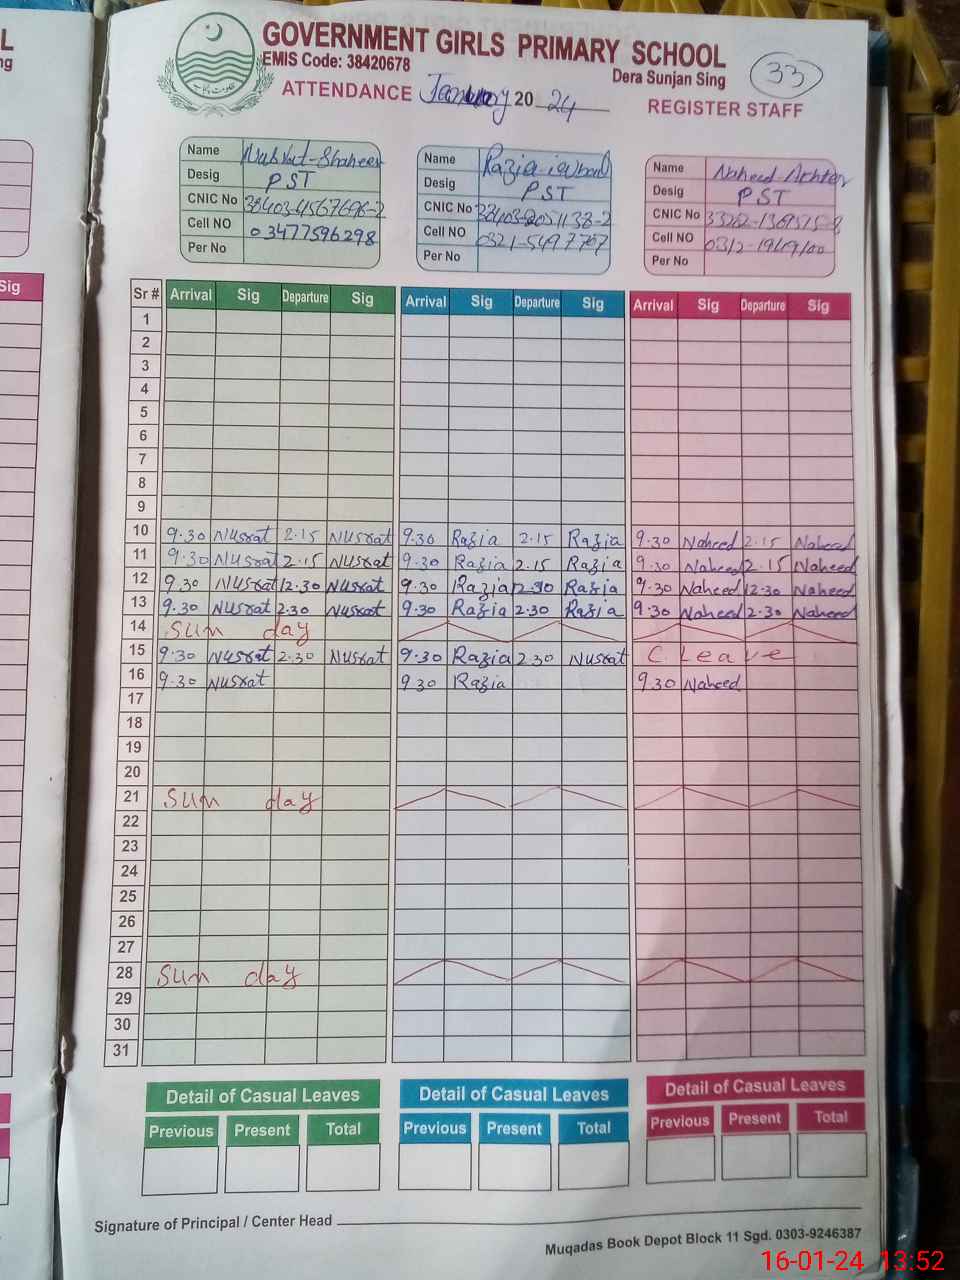 GOVERNMENT GIRLS PRIMARY SCHOOL
EMIS Code: 38420678
Dera Sunjan Sing
33
ATTENDANCE January 20 24 REGISTER STAFF
Name Nusrat-Shaheen
Desig PST
CNIC No
Cell NO 03477596298
Per No
Name Razia
Desig PST
CNIC No 38403-2051138-2
Cell NO 0321-5497767
Per No
Name Naheed Akhter
Desig PST
CNIC No
Cell NO
Per No
Sr # Arrival Sig Departure Sig Arrival Sig Departure Sig Arrival Sig Departure Sig
1
2
3
4
5
6
7
8
9
10 9.30 Nusrat 2.15 Nusrat 9.30 Razia 2.15 Razia 9.30 Naheed 2.15 Naheed
11 9.30 Nusrat 2.15 Nusrat 9.30 Razia 2.15 Razia 9.30 Naheed 2.15 Naheed
12 9.30 Nusrat 12.30 Nusrat 9.30 Razia 12.30 Razia 9.30 Naheed 12.30 Naheed
13 9.30 Nusrat 2.30 Nusrat 9.30 Razia 2.30 Razia 9.30 Naheed 2.30 Naheed
14 Sun day
15 9.30 Nusrat 2.30 Nusrat 9.30 Razia 2.30 Nusrat C. Leave
16 9.30 Nusrat 9.30 Razia 9.30 Naheed
17
18
19
20
21 Sun day
22
23
24
25
26
27
28 Sun day
29
30
31
Detail of Casual Leaves Detail of Casual Leaves Detail of Casual Leaves
Previous Present Total Previous Present Total Previous Present Total
Signature of Principal / Center Head
Muqadas Book Depot Block 11 Sgd. 0303-9246387
16-01-24 13:52